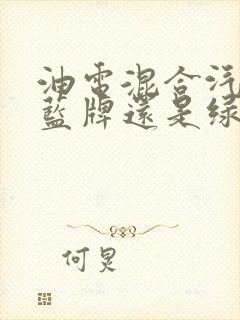 油电混合汽
蓝牌还是绿
何炅